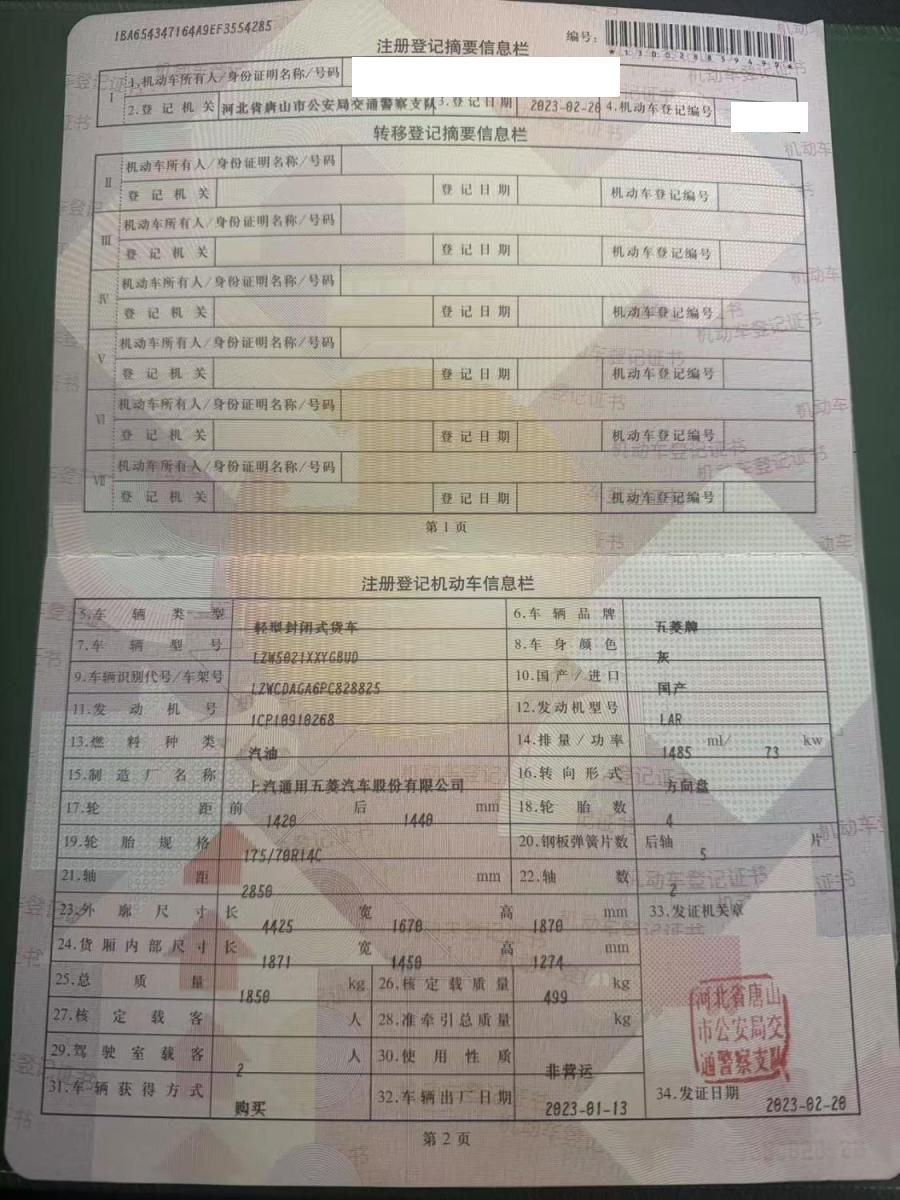 1BA654347164A9EF3554285
注册登记摘要信息栏
编号：
Ⅰ 1.机动车所有人/身份证明名称/号码
2.登记机关 河北省唐山市公安局交通警察支队 3.登记日期 2023-02-20 4.机动车登记编号
转移登记摘要信息栏
Ⅱ 机动车所有人/身份证明名称/号码
登记机关 登记日期 机动车登记编号
Ⅲ 机动车所有人/身份证明名称/号码
登记机关 登记日期 机动车登记编号
Ⅳ 机动车所有人/身份证明名称/号码
登记机关 登记日期 机动车登记编号
Ⅴ 机动车所有人/身份证明名称/号码
登记机关 登记日期 机动车登记编号
Ⅵ 机动车所有人/身份证明名称/号码
登记机关 登记日期 机动车登记编号
Ⅶ 机动车所有人/身份证明名称/号码
登记机关 登记日期 机动车登记编号
第1页
注册登记机动车信息栏
5.车辆类型 轻型封闭式货车 6.车辆品牌 五菱牌
7.车辆型号 LZW5021XXYGBUD 8.车身颜色 灰
9.车辆识别代号/车架号 LZWCDAGA6PC828825 10.国产/进口 国产
11.发动机号 1CP10910268 12.发动机型号 LAR
13.燃料种类 汽油 14.排量/功率 1485 ml/ 73 kw
15.制造厂名称 上汽通用五菱汽车股份有限公司 16.转向形式 方向盘
17.轮距 前 1420 后 1440 mm 18.轮胎数 4
19.轮胎规格 175/70R14C 20.钢板弹簧片数 后轴 5 片
21.轴距 2850 mm 22.轴数 2
23.外廓尺寸 长 4425 宽 1670 高 1870 mm 33.发证机关章
24.货厢内部尺寸 长 1871 宽 1450 高 1274 mm
25.总质量 1850 kg 26.核定载质量 499 kg
河北省唐山
市公安局交
通警察支队
27.核定载客 人 28.准牵引总质量 kg
29.驾驶室载客 2 人 30.使用性质 非营运
31.车辆获得方式 购买 32.车辆出厂日期 2023-01-13 34.发证日期 2023-02-20
第2页